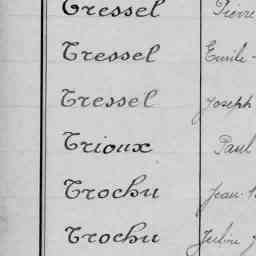 Tressel Pierre
Tressel Emile -
Tressel Joseph
Trioux Paul
Trochu Jean-
Trochu